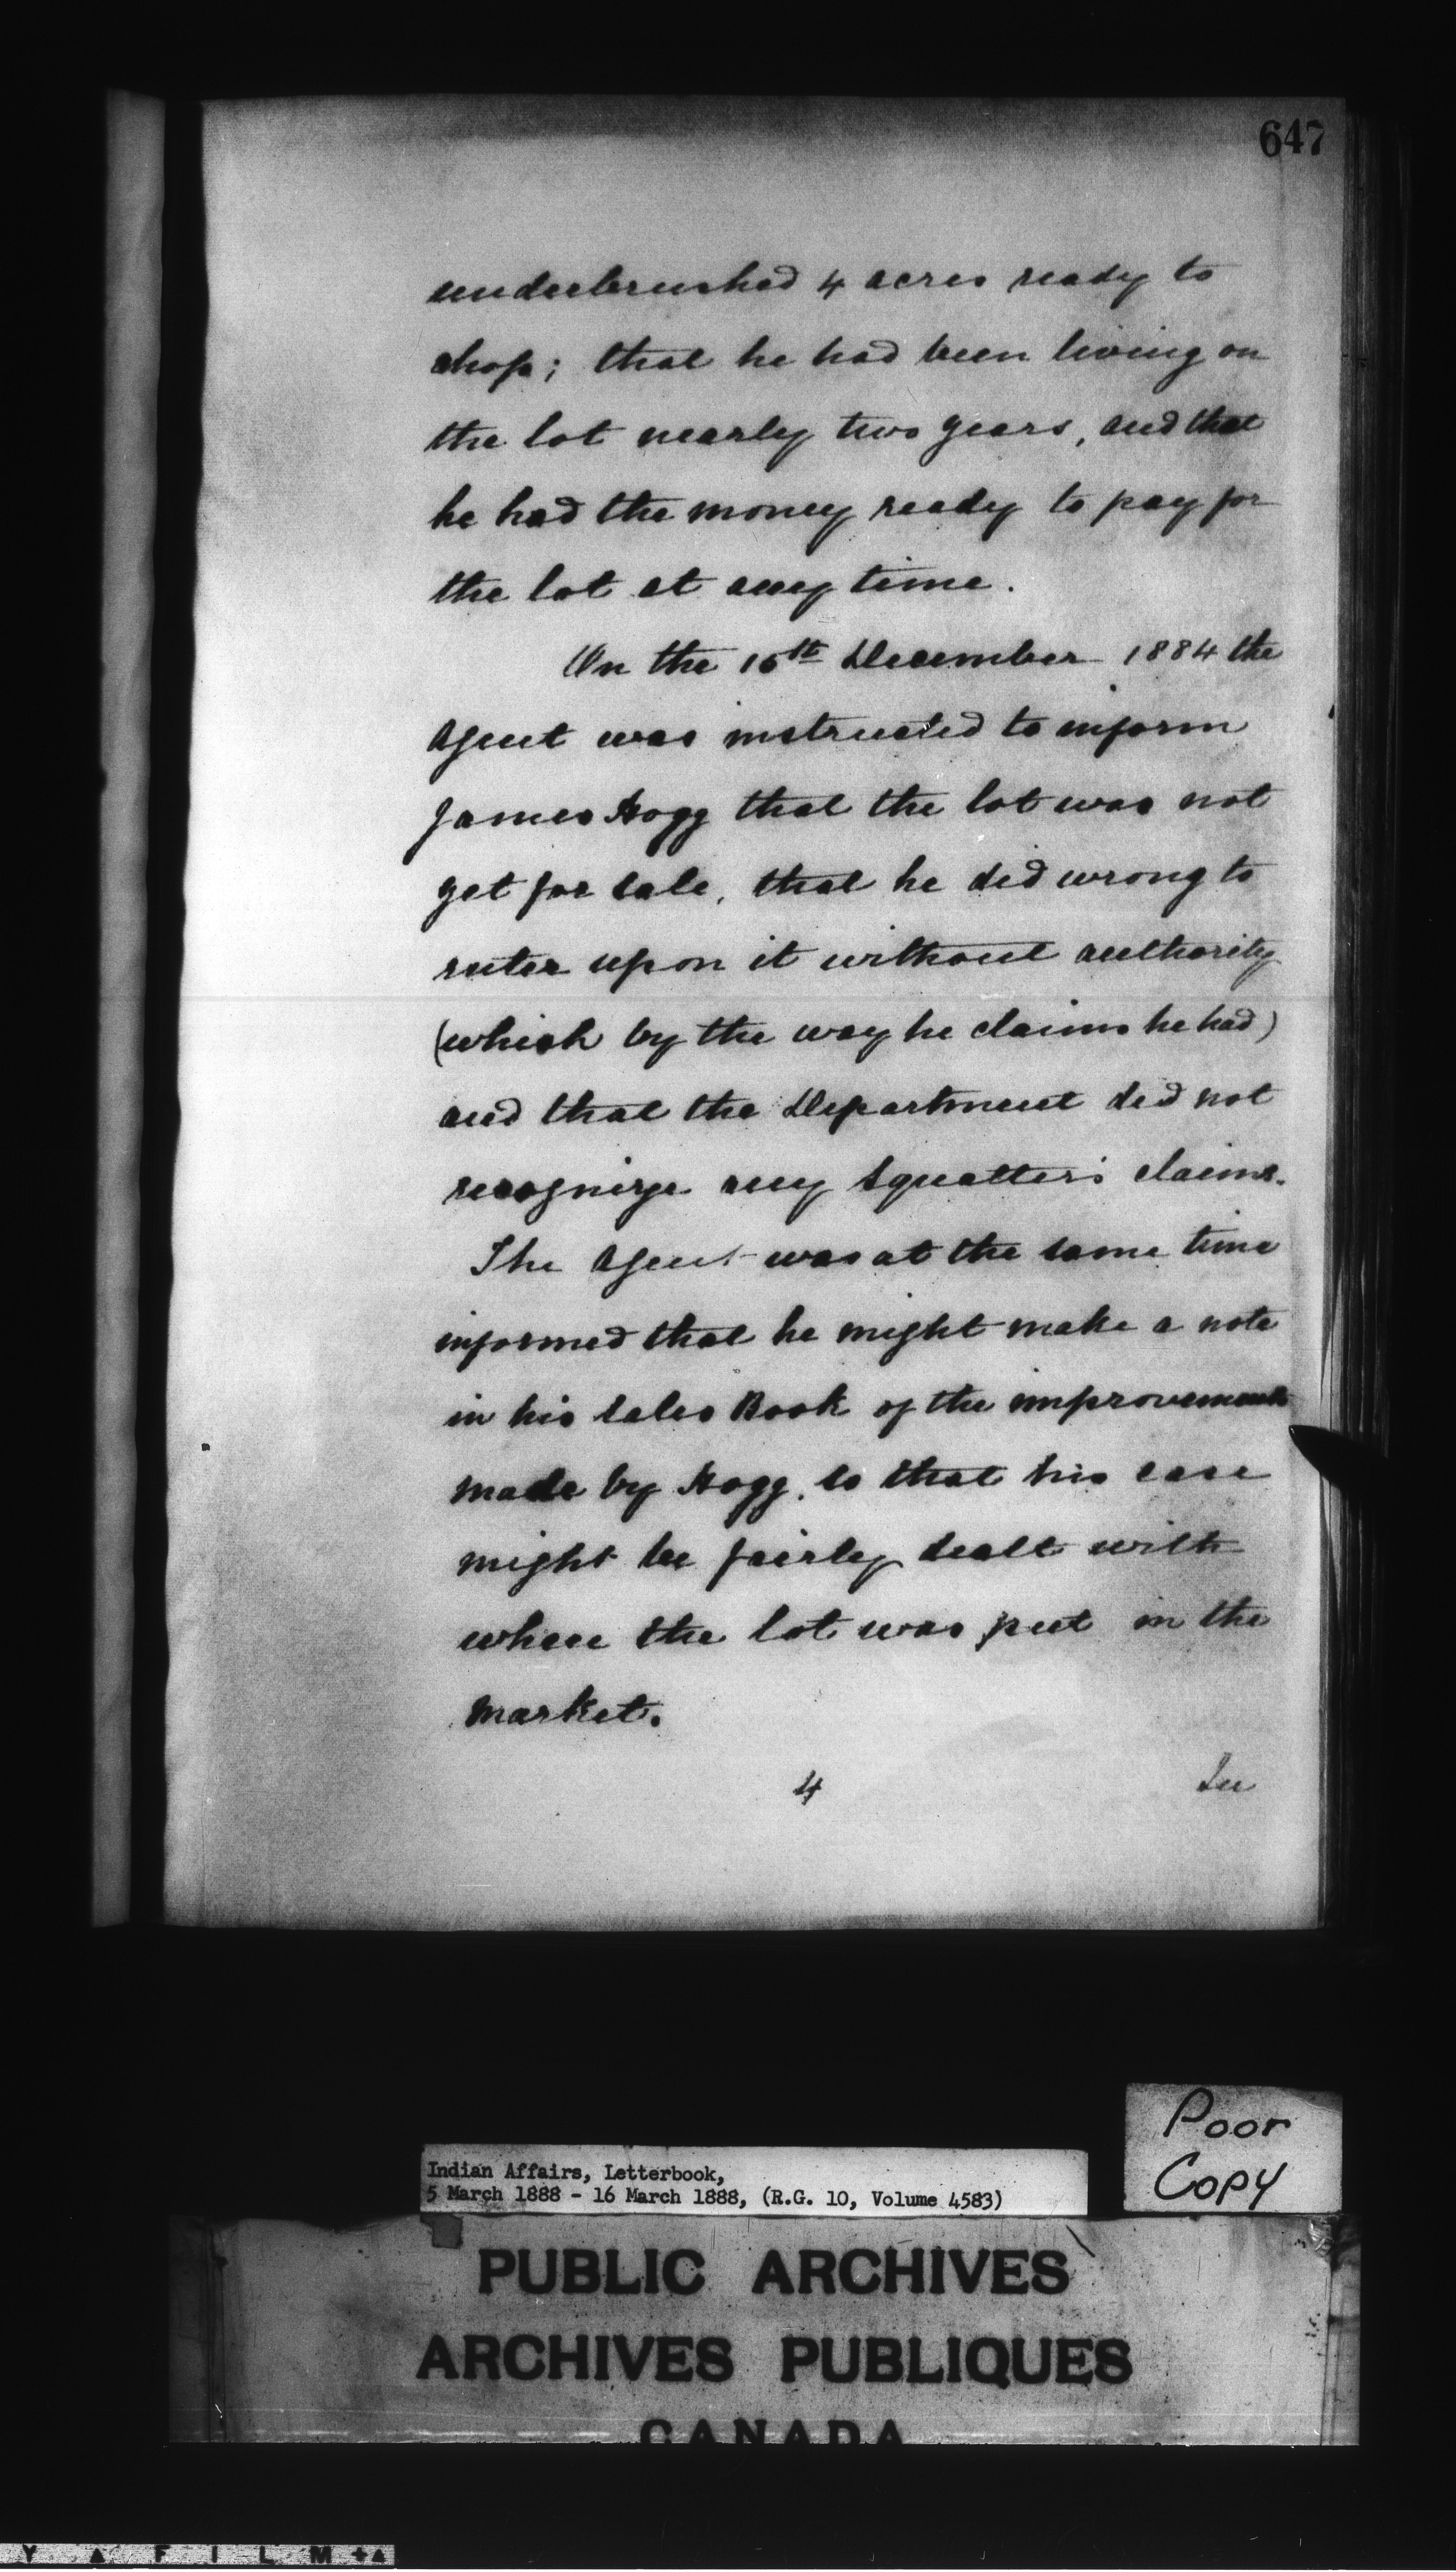 647
underbrushed 4 acres ready to
chop; that he had been living on
the lot nearly two years, and that
he had the money ready to pay for
the lot at any time.
On the 16th December 1884 the
Agent was instructed to inform
James Hogg that the lot was not
yet for sale, that he did wrong to
enter upon it without authority
(which by the way he claims he had)
and that the Department did not
recognize any Squatter's claims.
The Agent was at the same time
informed that he might make a note
in his Sales Book of the improvements
made by Hogg, so that his case
might be fairly dealt with
when the lot was put in the
market.
4 In
Poor
Copy
Indian Affairs, Letterbook,
5 March 1888 - 16 March 1888, (R.G. 10, Volume 4583)
PUBLIC ARCHIVES
ARCHIVES PUBLIQUES
CANADA